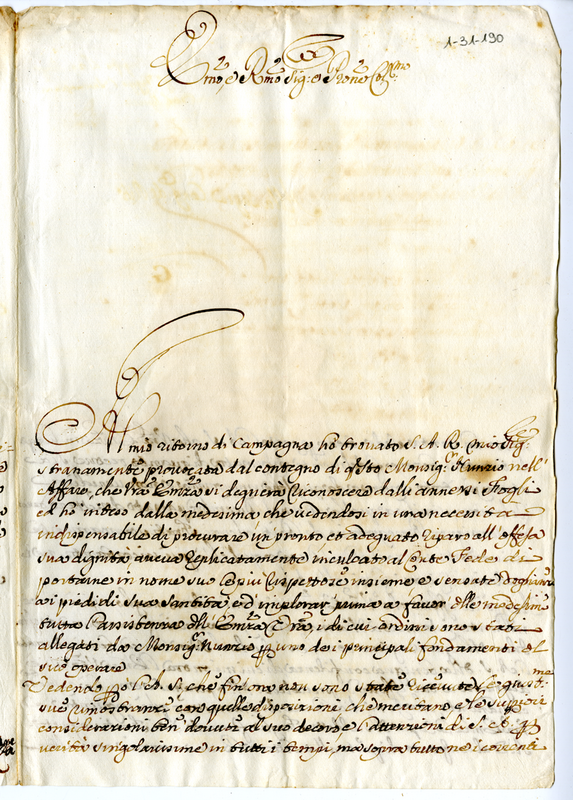 1-31-190
Emo, e Rmo Sig: e Prone Col.mo
Al mio ritorno di Campagna ho trovato S. A. R. mio Sig:re
stranamente provocata dal contegno di q.sto Monsig.r Nunzio nell'
Affare, che Vra Emza si degnerà riconoscere dalli annessi Fogli
ed ho inteso dalla medesima che vedendosi in una necessità
indispensabile di procurare un pronto et adeguato riparo all'offesa
sua dignità aveva replicatamente inculcato al Conte Fede di
portarne in nome suo le più rispettose insieme e sensate doglianze
ai piedi di Sua Santità e d'implorar prima a favor delle medesime
tutta l'assistenza dell' Emza Vra i di cui ordini sono stati
allegati da Monsig.r Nunzio p uno dei principali fondamenti del
suo operare
Vedendo po l'A. S. che fin'ora non sono state ricevute le giust.me
sue rimostranze con quelle disposizioni che meritano e le
considerazioni ben dovute al suo decoro e l'attenzioni di S. e p
verità singolarissime in tutti i tempi, ma sopra tutto ne i correnti